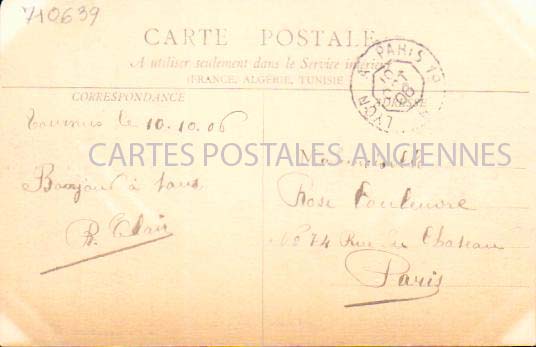 710639
CARTE POSTALE
A utiliser seulement dans le Service intérieur
(FRANCE, ALGERIE, TUNISIE
CORRESPONDANCE
ADRESSE
LYON A PARIS
10 OCT 06
Tournus le 10.10.06
CARTES POSTALES ANCIENNES
Mademoiselle
Bonjour à tous
Rose
R. Clair
74 Rue du Chateau
Paris